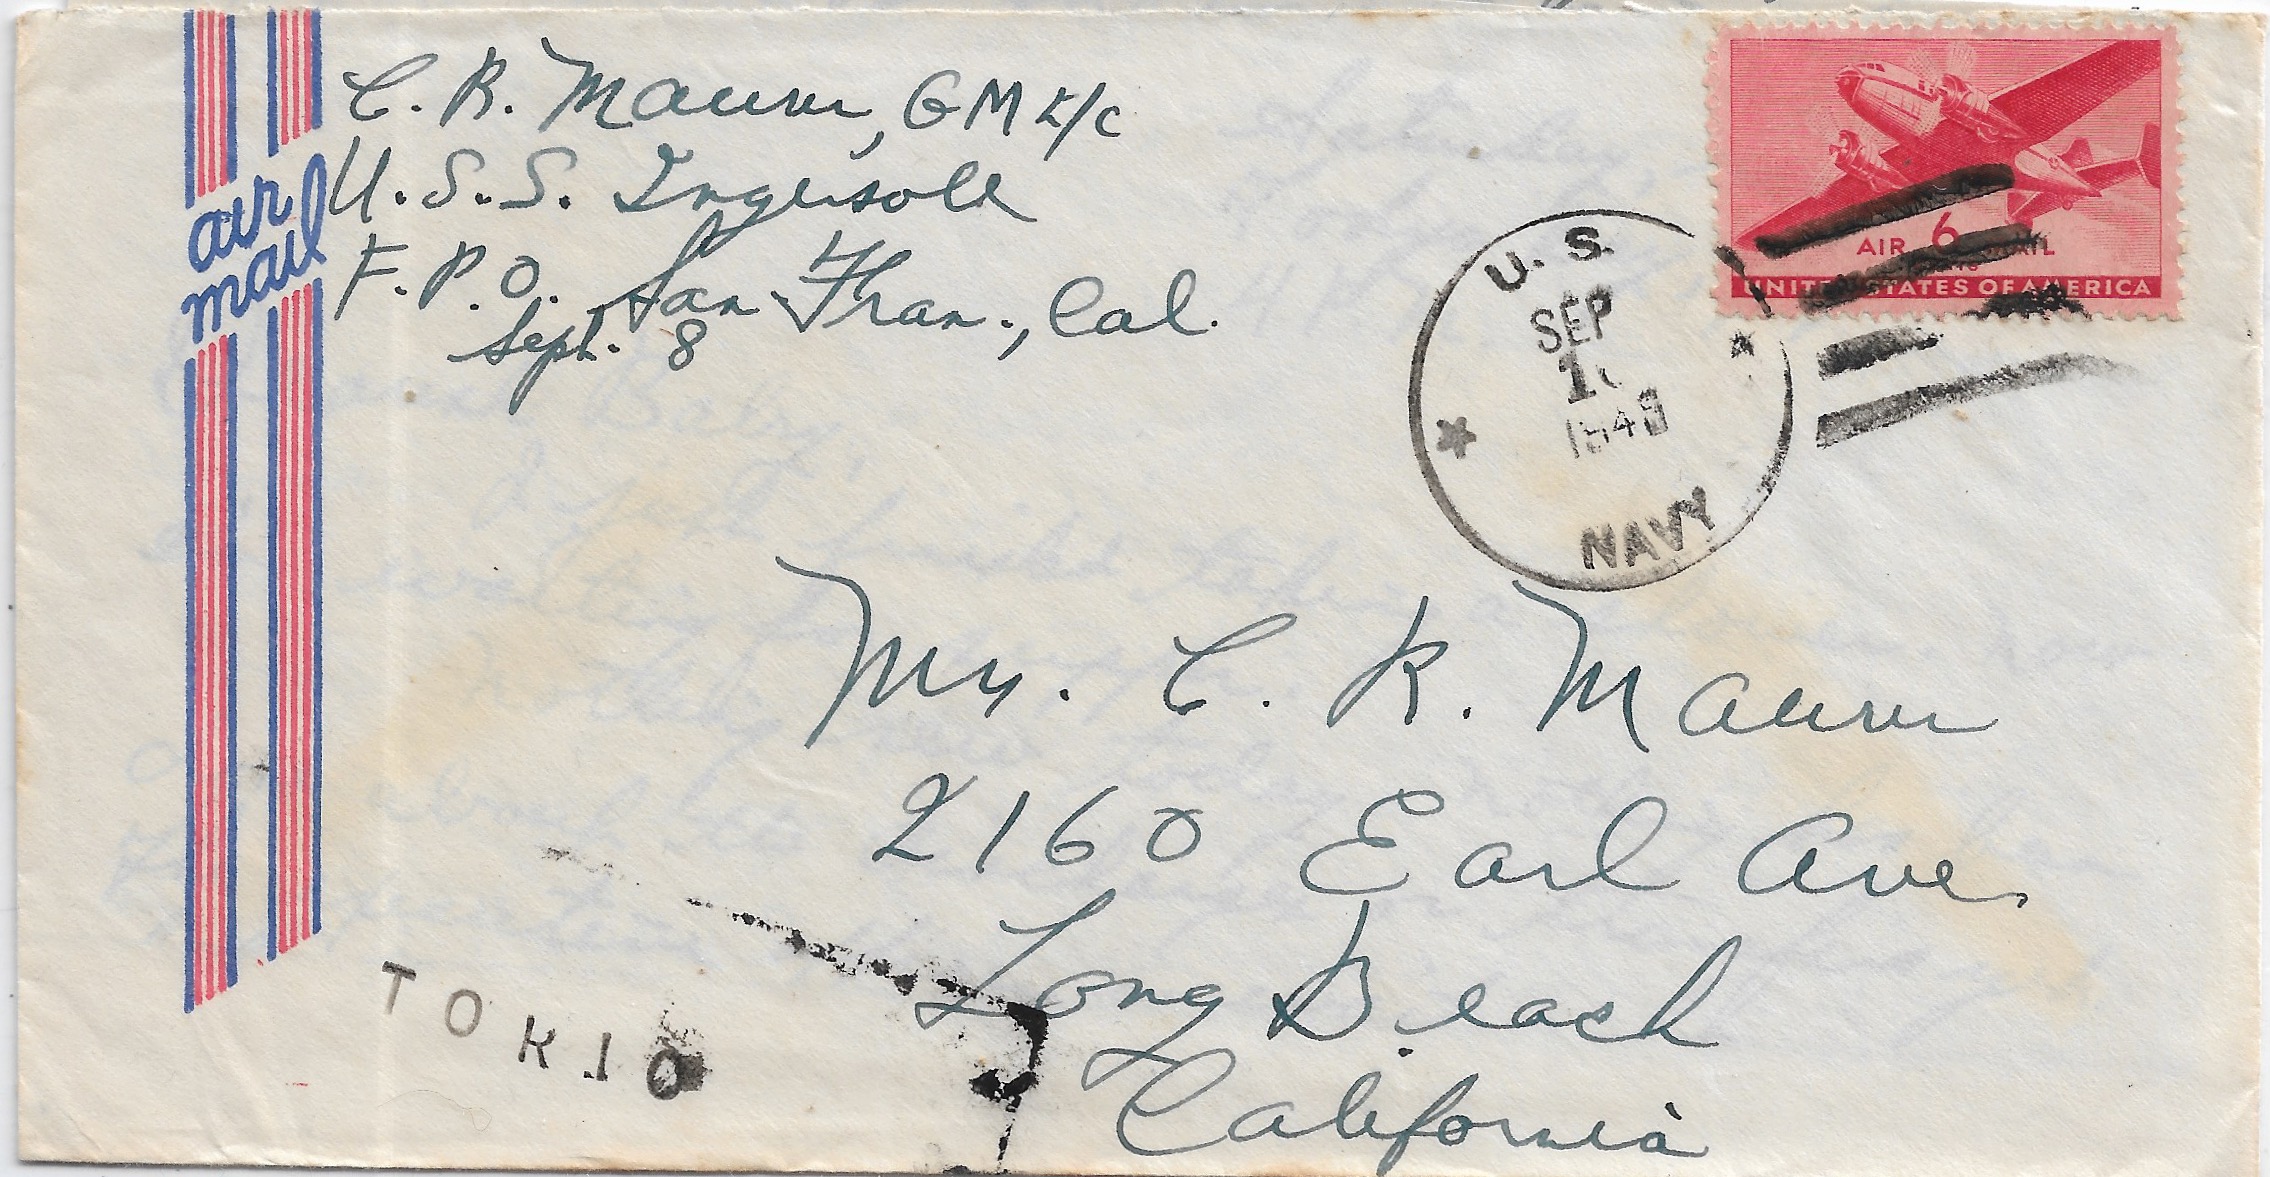 air
mail
C. R. Maurer, GM 2/c
U.S.S. Ingersoll
F.P.O. San Fran., Cal.
Sept. 8
AIR 6 MAIL
UNITED STATES OF AMERICA
U.S.
SEP
1945
NAVY
Mrs. C. R. Maurer
2160 Earl Ave.
Long Beach
California
TOKIO